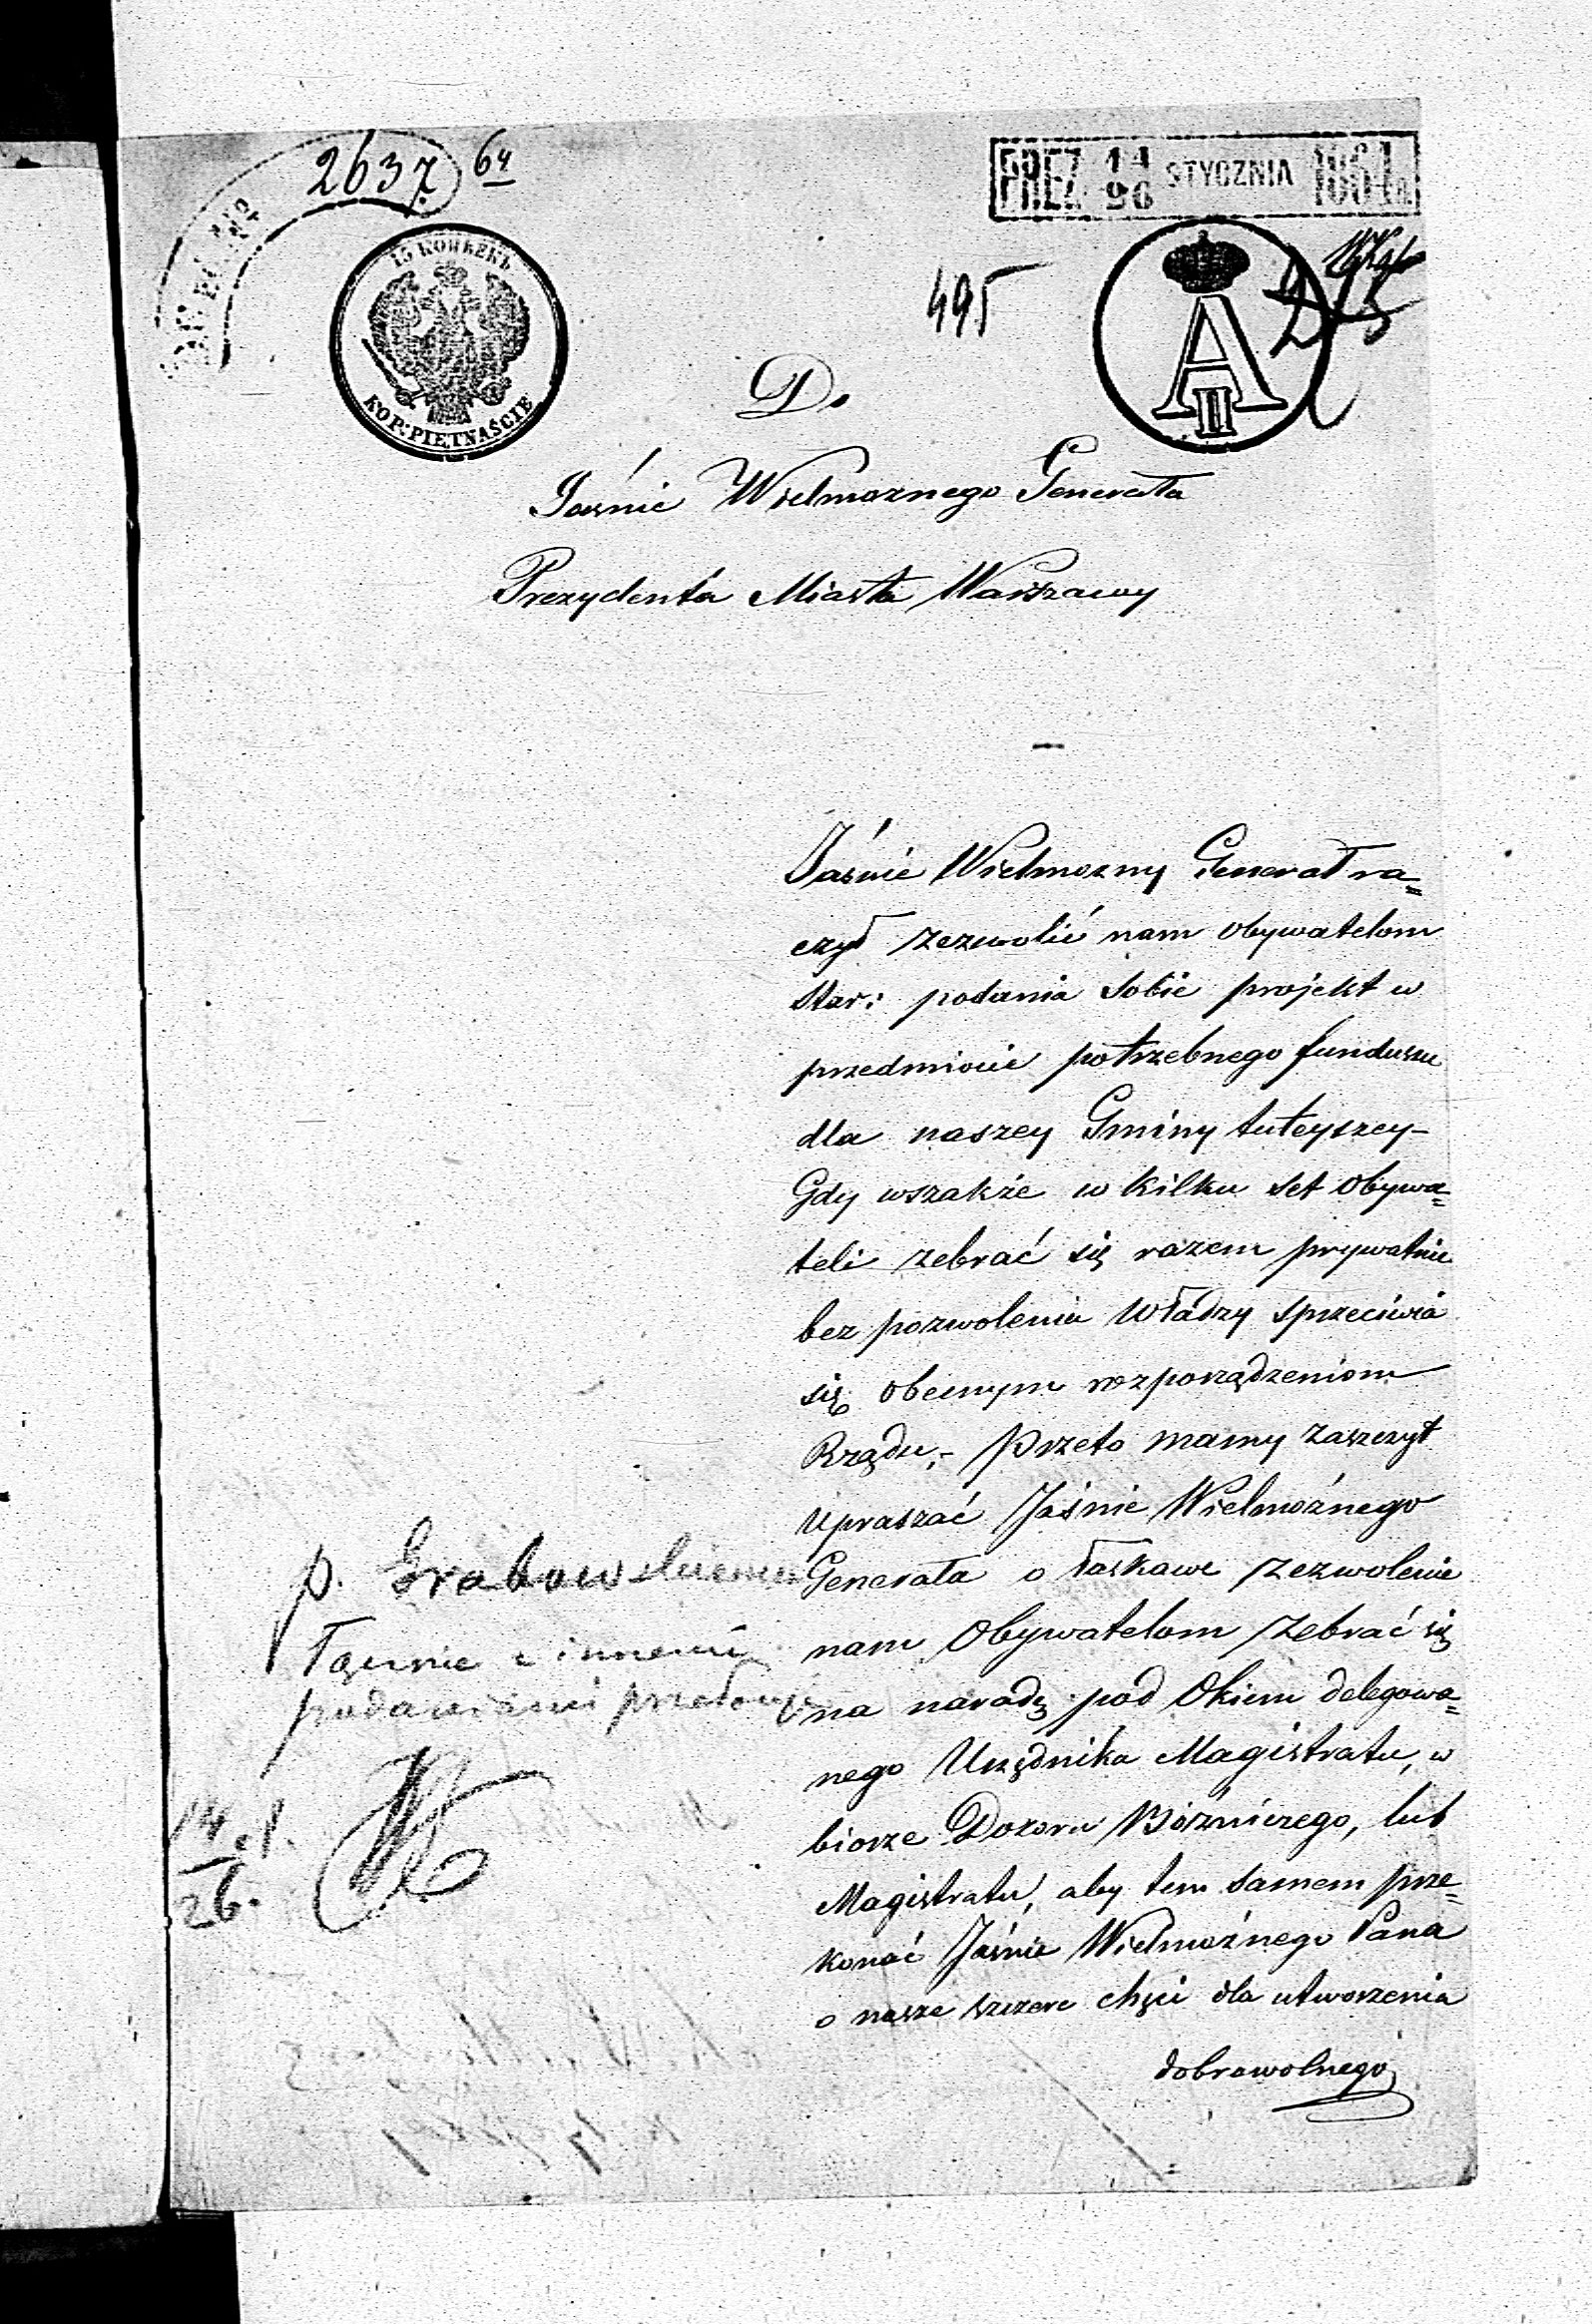 2637. 64
PREZ 14/26 STYCZNIA 1864 R.
15 КОПѢЕКЪ
KOP: PIĘTNAŚCIE
A II
495
Do
Jaśnie Wielmoznego Generała
Prezydenta Miasta Warszawy
Jaśnie Wielmozny Generał ra=
czył zezwolić nam obywatelom
star: podania sobie projekt w
przedmiocie potrzebnego funduszu
dla naszey Gminy tuteyszey-
Gdy wszakże w kilku set Obywa=
teli zebrać się razem prywatnie
bez pozwolenia Władzy sprzeciwia
się obecnym rozporządzeniom
Rządu,- Przeto mamy zaszczyt
upraszać Jaśnie Wielmożnego
Generała o łaskawe zezwolenie
nam Obywatelom zebrać się
na naradę pod Okiem delegowa=
nego Urzędnika Magistratu, w
biorze Dozoru Bóżniczego, lub
Magistratu, aby tem samem prze=
konać Jaśnie Wielmożnego Pana
o nasze szczere chęci dla utworzenia
dobrowolnego
p. Grabowskiemu
Łącznie z innemi
podaniami
14/26. 1.